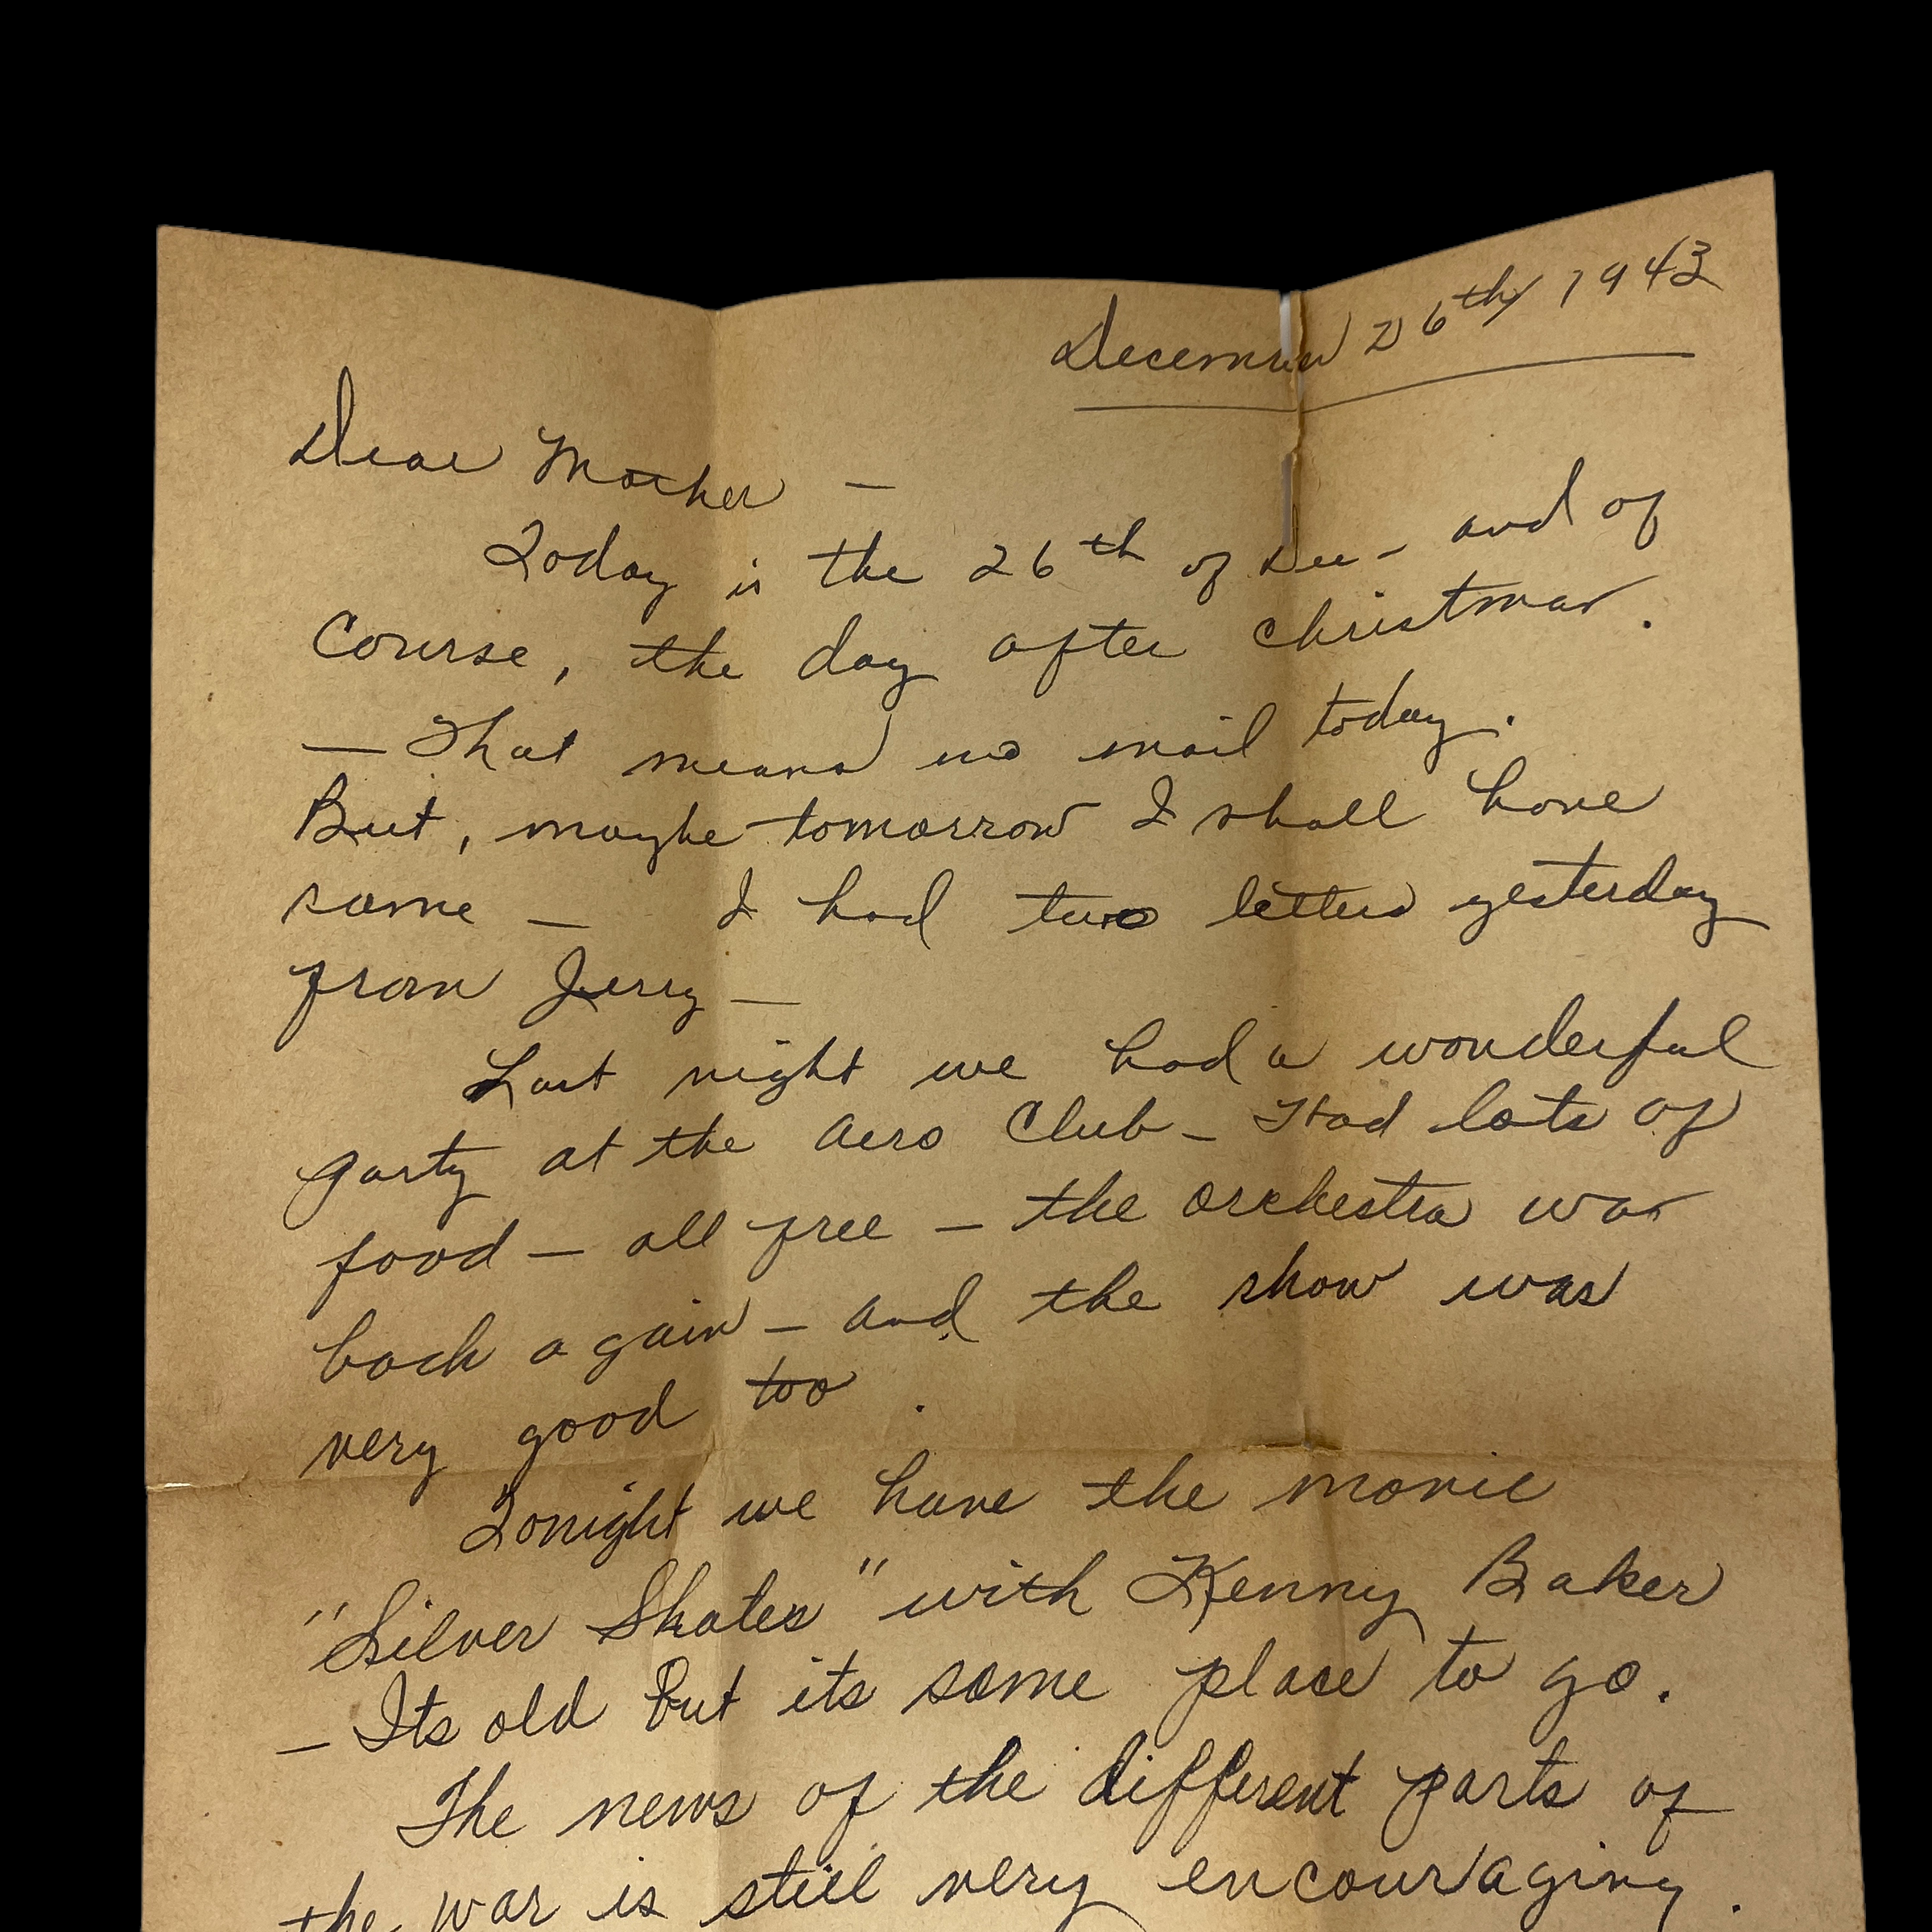 December 26th/ 1943
Dear Mother —
Today is the 26th of Dec - and of
Course, the day after Christmas.
— That means no mail today.
But, maybe tomorrow I shall have
some — I had two letters yesterday
from Jerry —
Last night we had a wonderful
party at the Aero Club - Had lots of
food — all free — the orchestra was
back again — and the show was
very good too.
Tonight we have the movie
"Silver Skates" with Kenny Baker
— Its old but its some place to go.
The news of the different parts of
the war is still very encouraging.